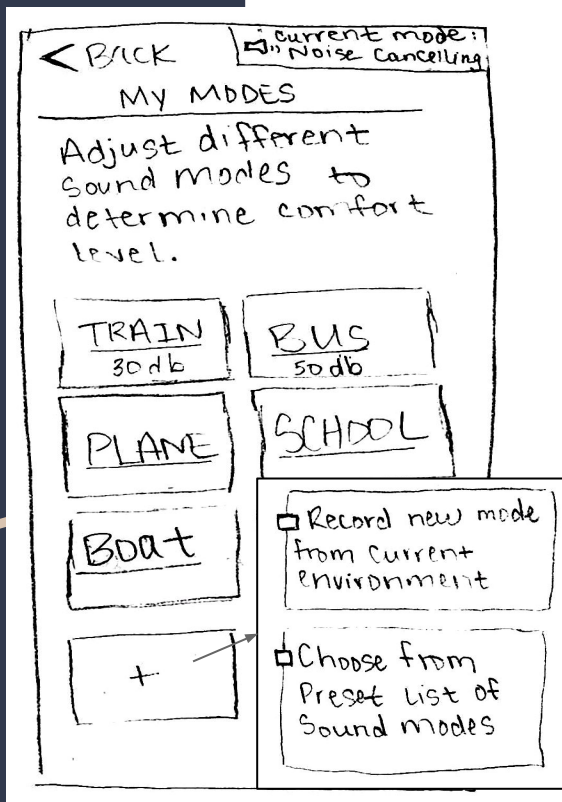 < BACK
current mode:
Noise Cancelling
MY MODES
Adjust different
Sound modes to
determine comfort
level.
TRAIN
30 db
BUS
50 db
PLANE
SCHOOL
Boat
+
Record new mode
from current
environment
Choose from
Preset List of
Sound modes